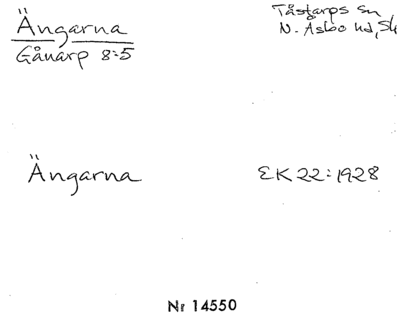 Ängarna
Gånarp 8:5
Tåstarps sn
N. Åsbo hd, Sk
Ängarna
EK 22:1928
Nr 14550